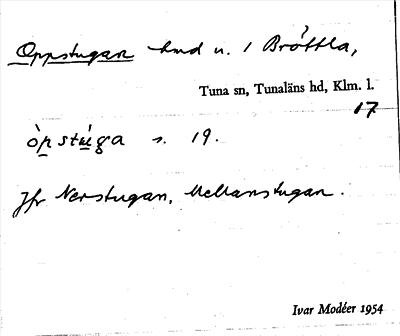 Oppstugan hmd n. 1 Bröttla,
Tuna sn, Tunaläns hd, Klm. l.
17
òpstúga s. 19.
Jfr Nerstugan, Mellanstugan.
Ivar Modéer 1954